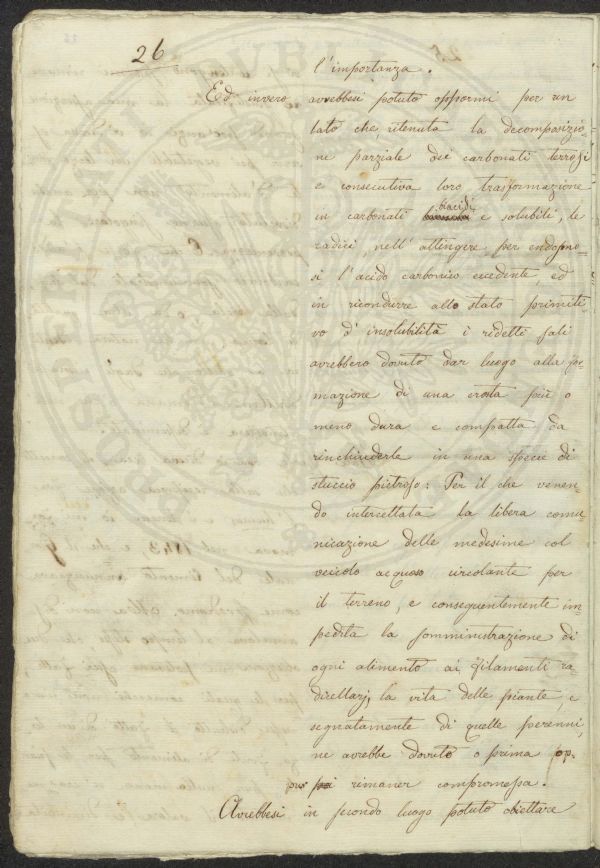 26
l'importanza.
Ed invero avrebbesi potuto oppormi per un
lato che, ritenuta la decomposizio-
ne parziale dei carbonati terrosi
e consecutiva loro trasformazione
in carbonati biacidi e solubili, le
radici, nell'attingere per endosmo-
si l'acido carbonico eccedente, ed
in ricondurre allo stato primiti-
vo d'insolubilità i ridetti sali
avrebbero dovuto dar luogo alla for-
mazione di una crosta più o
meno dura e compatta da
rinchiuderle in una specie di
stuccio pietroso: Per il che venen-
do intercettata la libera comu-
nicazione delle medesime col
veicolo acquoso circolante per
il terreno, e conseguentemente im-
pedita la somministrazione di
ogni alimento ai filamenti ra-
dicellarj, la vita delle piante, e
segnatamente di quelle perenni,
ne avrebbe dovuto o prima op-
pur poi rimaner compromessa.
Avrebbesi in secondo luogo potuto obiettare